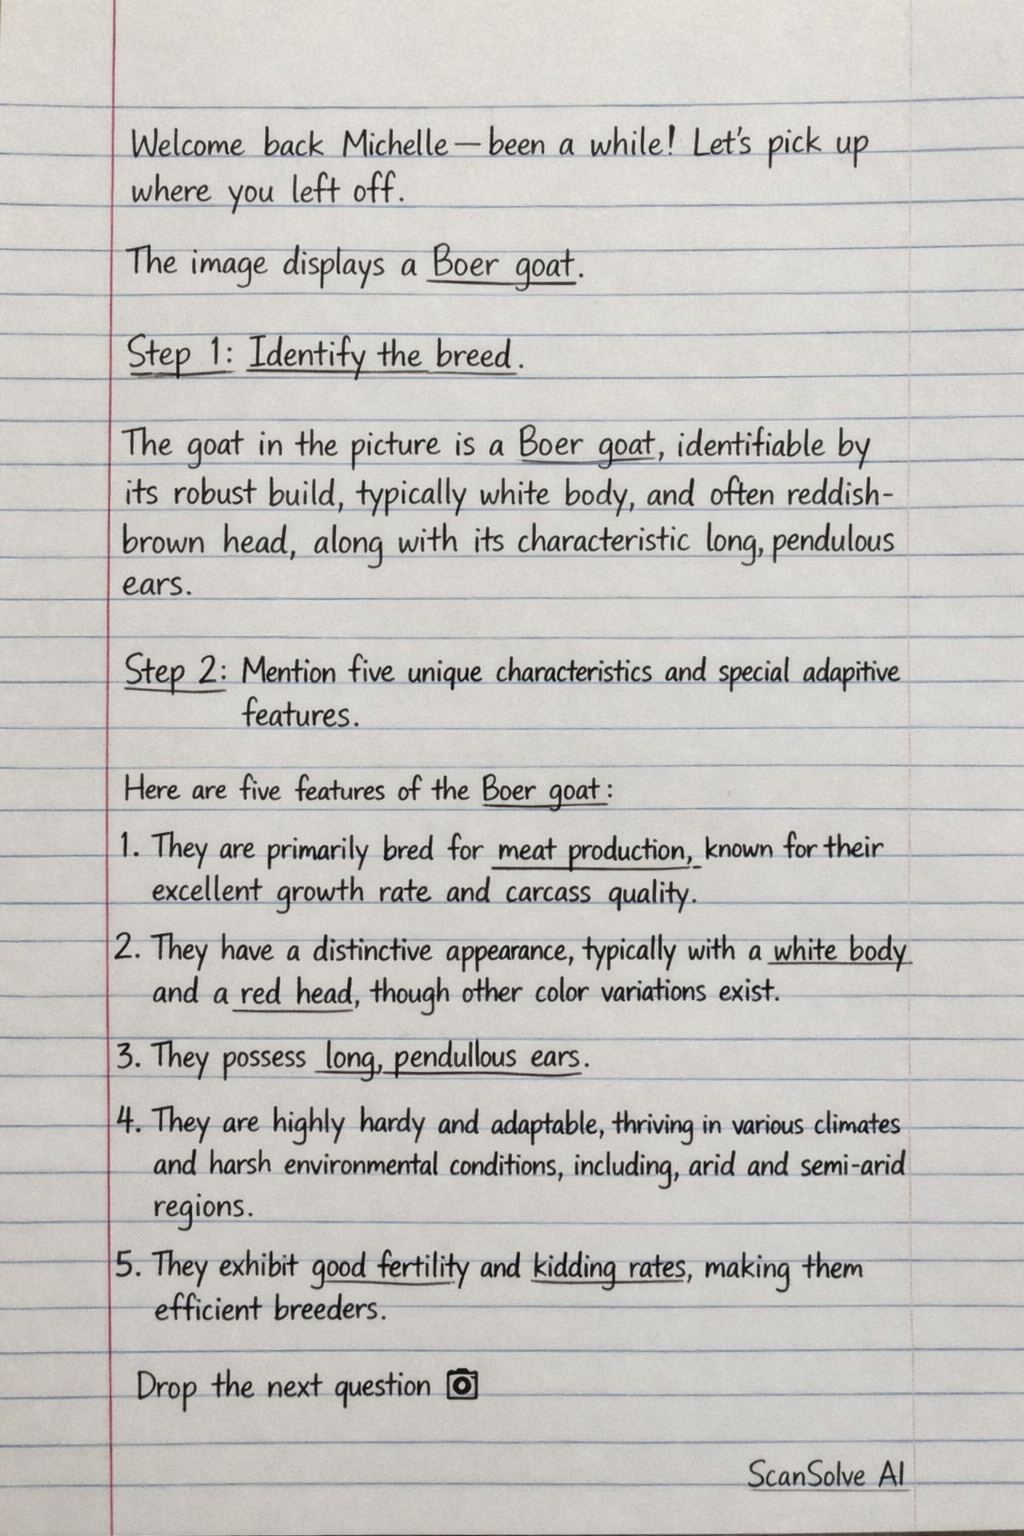 Welcome back Michelle—been a while! Let's pick up
where you left off.
The image displays a Boer goat.
Step 1: Identify the breed.
The goat in the picture is a Boer goat, identifiable by
its robust build, typically white body, and often reddish-
brown head, along with its characteristic long, pendulous
ears.
Step 2: Mention five unique characteristics and special adapitive
features.
Here are five features of the Boer goat:
1. They are primarily bred for meat production, known for their
excellent growth rate and carcass quality.
2. They have a distinctive appearance, typically with a white body
and a red head, though other color variations exist.
3. They possess long, pendullous ears.
4. They are highly hardy and adaptable, thriving in various climates
and harsh environmental conditions, including, arid and semi-arid
regions.
5. They exhibit good fertility and kidding rates, making them
efficient breeders.
Drop the next question 📷
ScanSolve AI